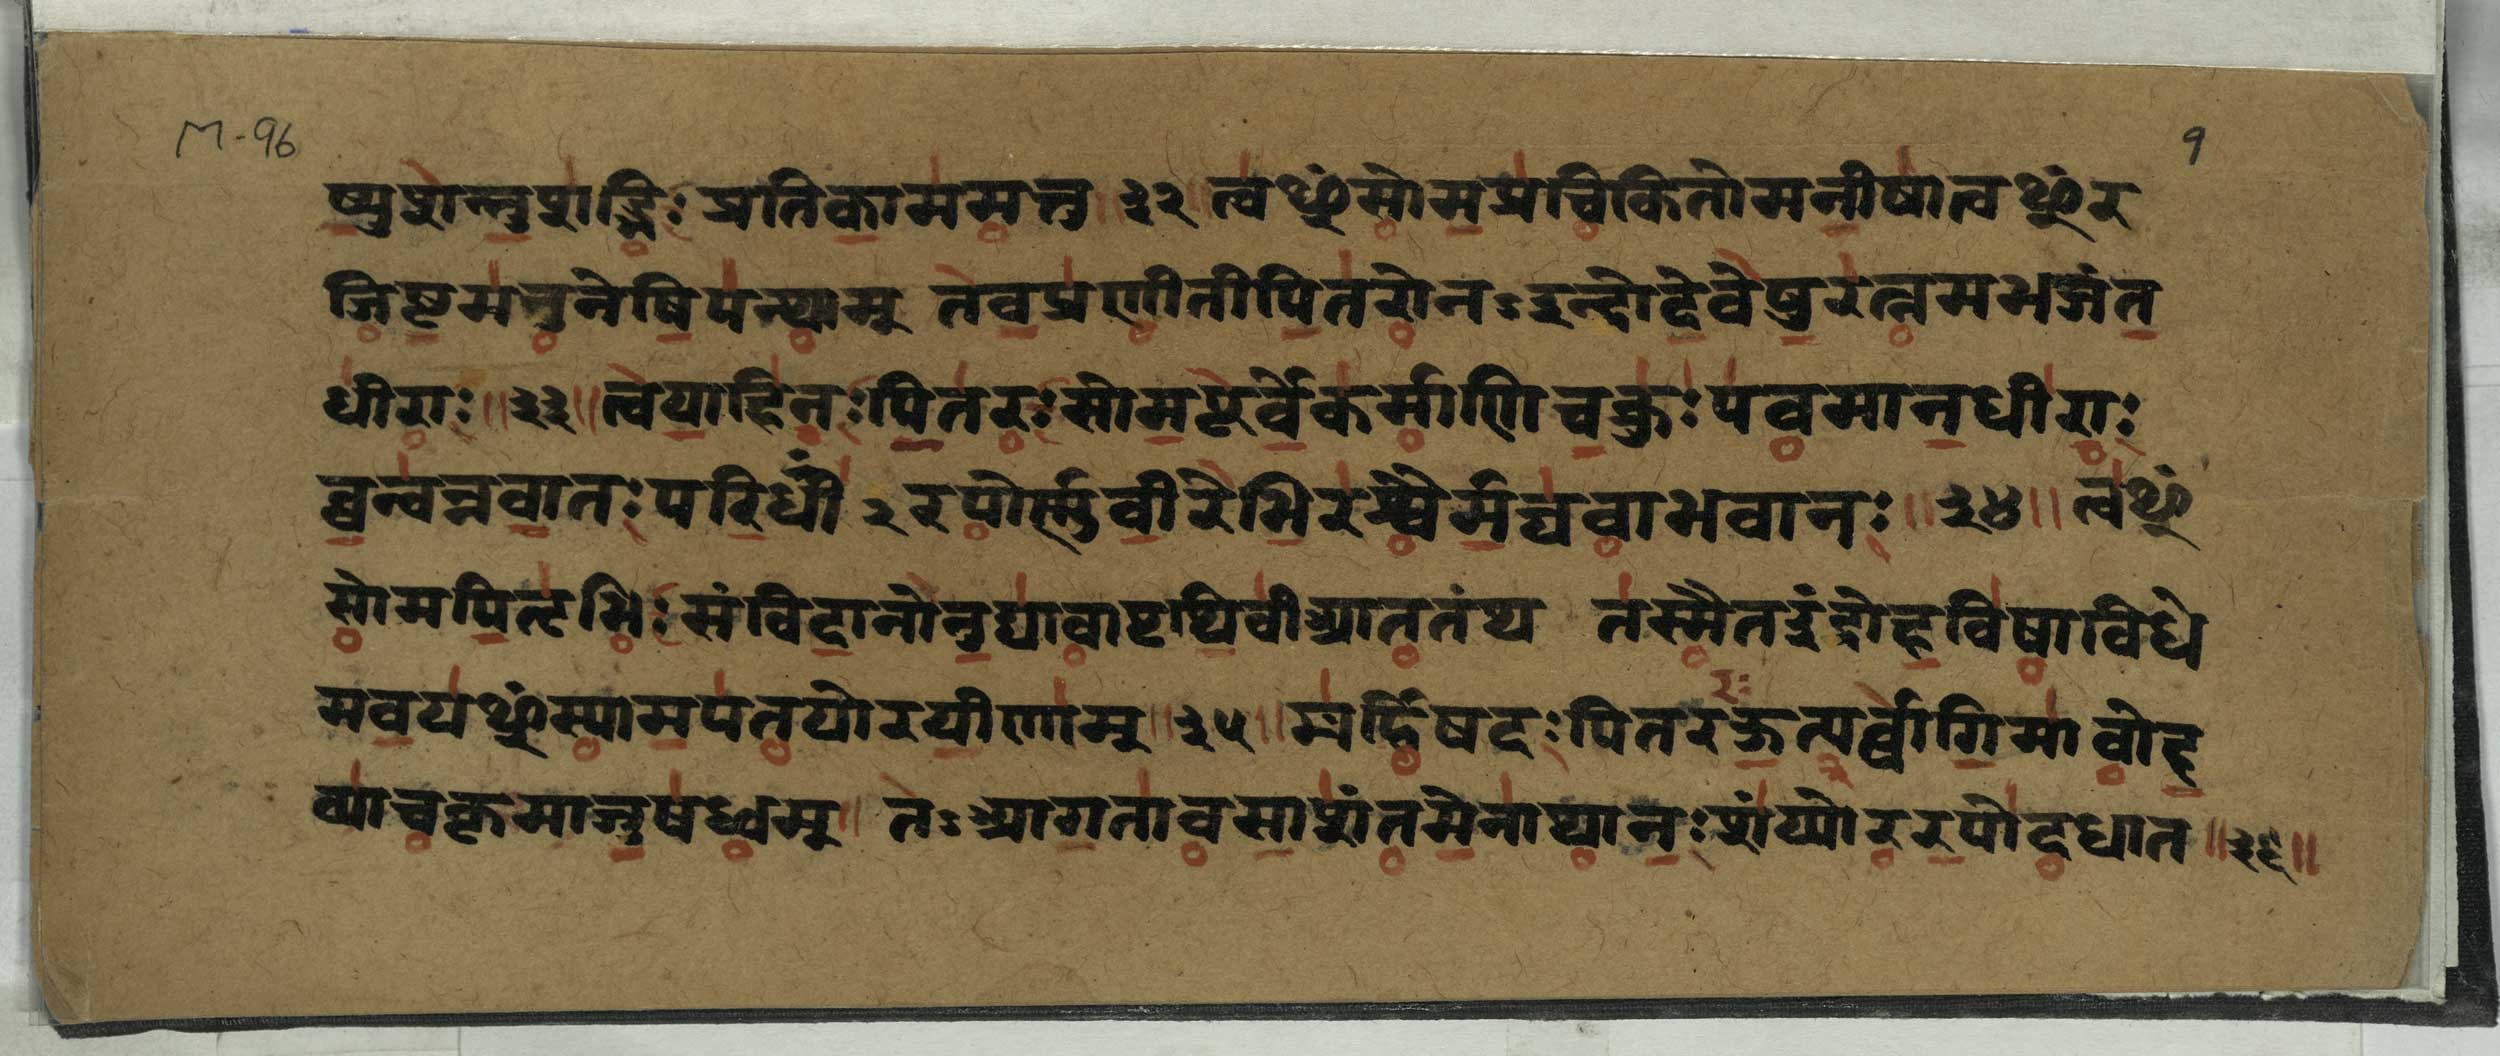 M-96
9
ष्युशन्नुशद्भिः प्रतिकाममत्तु ३२ त्वᳪसोमप्रचिकितोमनीषात्वᳪर
जिष्टमनुनेषिपन्थाम् तवप्रणीतीपितरोनऽइन्दोदेवेषुरत्नमभजंत
धीराः ॥ ३३ ॥ त्वयाहिनःपितरःसोमपूर्वेकर्माणिचक्रुःपवमानधीराः
व्वन्वन्नवातःपरिधीँ २रपोर्णुवीरेभिरश्वैर्मघवाभवानः ॥ ३४ ॥ त्वᳪ
सोमपितृभिःसंविदानोनुद्यावापृथिवीआततंथ तस्मैतइंदोहविषाविधे
मवयᳪस्यामपतयोरयीणाम् ॥ ३५ ॥ बर्हिषदःपितरऊत्यर्व्वागिमावोह
व्याचकृमाजुषध्वम् ॥ तऽआगतावसाशंतमेनाथानःशंय्योररपोदधात ॥ ३६ ॥